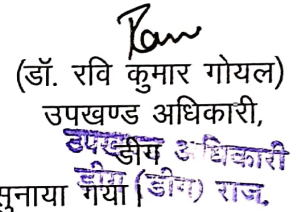 (डॉ. रवि कुमार गोयल)
उपखण्ड अधिकारी,
डीग
उपखण्ड अधिकारी
डीग (डीग) राज.
सुनाया गया।